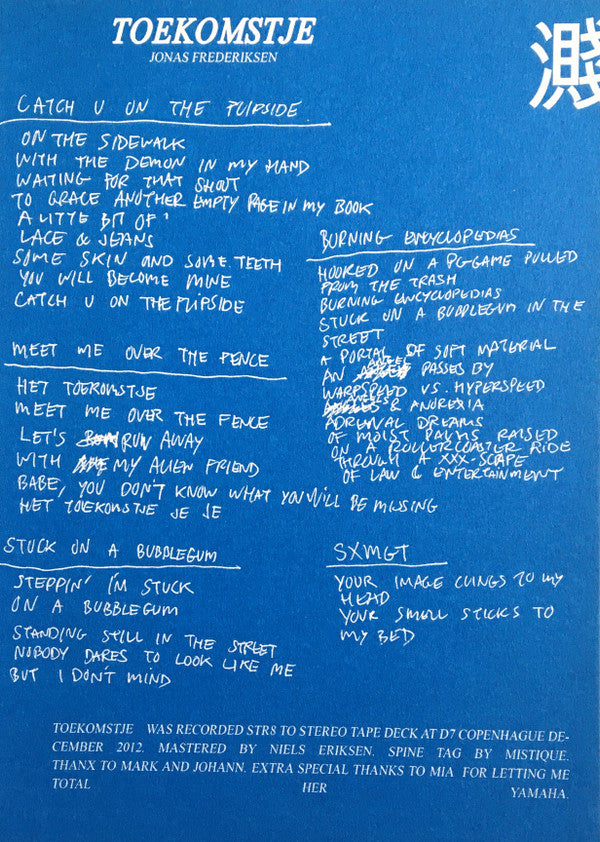 TOEKOMSTJE
JONAS FREDERIKSEN
CATCH U ON THE FLIPSIDE
ON THE SIDEWALK
WITH THE DEMON IN MY HAND
WAITING FOR THAT SHOUT
TO GRACE ANOTHER EMPTY PAGE IN MY BOOK
A LITTE BIT OF
LACE & JEANS
SOME SKIN AND SOME TEETH
YOU WILL BECOME MINE
CATCH U ON THE FLIPSIDE
MEET ME OVER THE FENCE
HET TOEKOMSTJE
MEET ME OVER THE FENCE
LET'S RUN AWAY
WITH MY ALIEN FRIEND
BABE, YOU DON'T KNOW WHAT YOU WILL BE MISSING
HET TOEKOMSTJE JE JE
STUCK ON A BUBBLEGUM
STEPPIN' I'M STUCK
ON A BUBBLEGUM
STANDING STILL IN THE STREET
NOBODY DARES TO LOOK LIKE ME
BUT I DON'T MIND
BURNING ENCYCLOPEDIAS
HOOKED ON A PC-GAME PULLED
FROM THE TRASH
BURNING ENCYCLOPEDIAS
STUCK ON A BUBBLEGUM IN THE
STREET
A PORTAL OF SOFT MATERIAL
AN ANGEL PASSES BY
WARPSPEED VS. HYPERSPEED
& ANOREXIA
ADRENAL DREAMS
OF MOIST PALMS RAISED
ON A ROLLERCOASTER RIDE
THROUGH A XXX-SCAPE
OF LAW & ENTERTAINMENT
SXMGT
YOUR IMAGE CLINGS TO MY
HEAD
YOUR SMELL STICKS TO
MY BED
TOEKOMSTJE WAS RECORDED STR8 TO STEREO TAPE DECK AT D7 COPENHAGUE DE-
CEMBER 2012. MASTERED BY NIELS ERIKSEN. SPINE TAG BY MISTIQUE.
THANX TO MARK AND JOHANN. EXTRA SPECIAL THANKS TO MIA FOR LETTING ME
TOTAL HER YAMAHA.